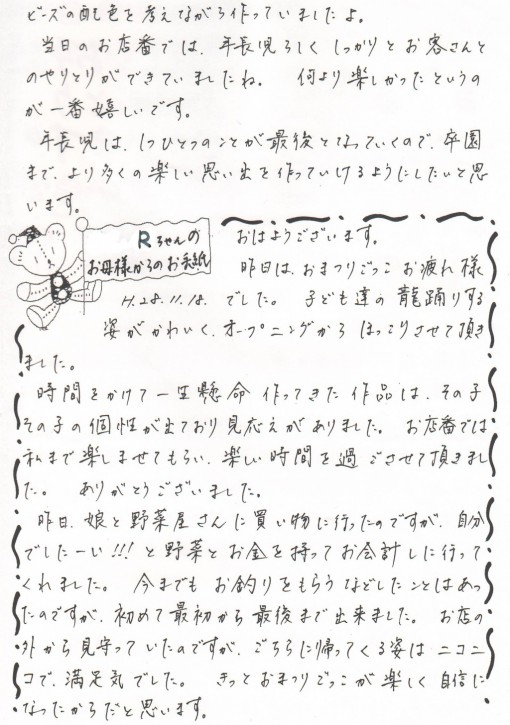 ビーズの配も色を考えながら作っていましたよ。
当日のお店番では、年長児らしくしっかりとお客さんと
のやりとりができていましたね。何より楽しかったというの
が一番嬉しいです。
年長児は、1つひとつのことが最後となっていくので、卒園
まで、より多くの楽しい思い出を作っていけるようにしたいと思
います。
Rちゃんの
お母様からのお手紙
H.28.11.18.
おはようございます。
昨日は、おまつりごっこお疲れ様
でした。子ども達の龍踊りする
姿がかわいく、オープニングからほっこりさせて頂き
ました。
時間をかけて一生懸命作ってきた作品は、その子
その子の個性が出ており見応えがありました。お店番では
私まで楽しませてもらい、楽しい時間を過ごさせて頂きまし
た。ありがとうございました。
昨日、娘と野菜屋さんに買い物に行ったのですが、自分
でしたーい!!!と野菜とお金を持ってお会計しに行って
くれました。今までもお釣りをもらうなどしたことはあっ
たのですが、初めて最初から最後まで出来ました。お店の
外から見守っていたのですが、こちらに帰ってくる姿はニコニ
コで、満足気でした。きっとおまつりごっこが楽しく自信に
なったからだと思います。